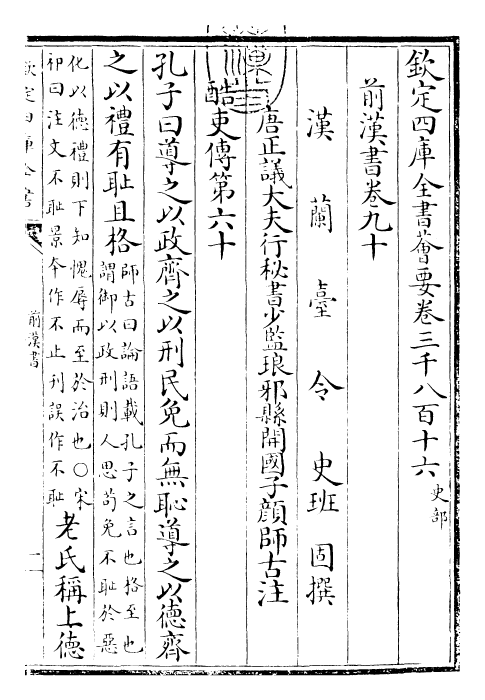 欽定四庫全書薈要卷三千八百十六 史部
前漢書卷九十
漢蘭臺令史班固撰
唐正議大夫行秘書少監琅邪縣開國子顔師古注
酷吏傳第六十
孔子曰導之以政齊之以刑民免而無恥導之以德齊
之以禮有耻且格
師古曰論語載孔子之言也格至也
謂御以政刑則人思苟免不耻於惡
化以德禮則下知愧辱而至於治也○宋
祁曰注文不耻景夲作不止刋誤作不耻
老氏稱上德
前漢書
一